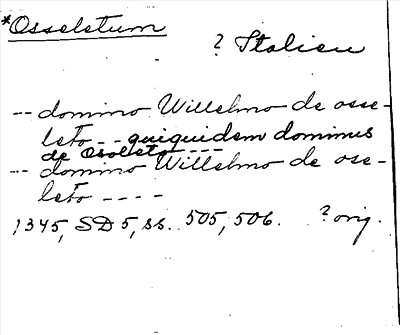 *Osseletum
? Italien
-- domino Willelmo de osse-
leto -- quiquidem dominus
de Osoleto ---
-- domino Willelmo de ose-
leto ----
1345, SD 5, ss. 505, 506. ? orig.